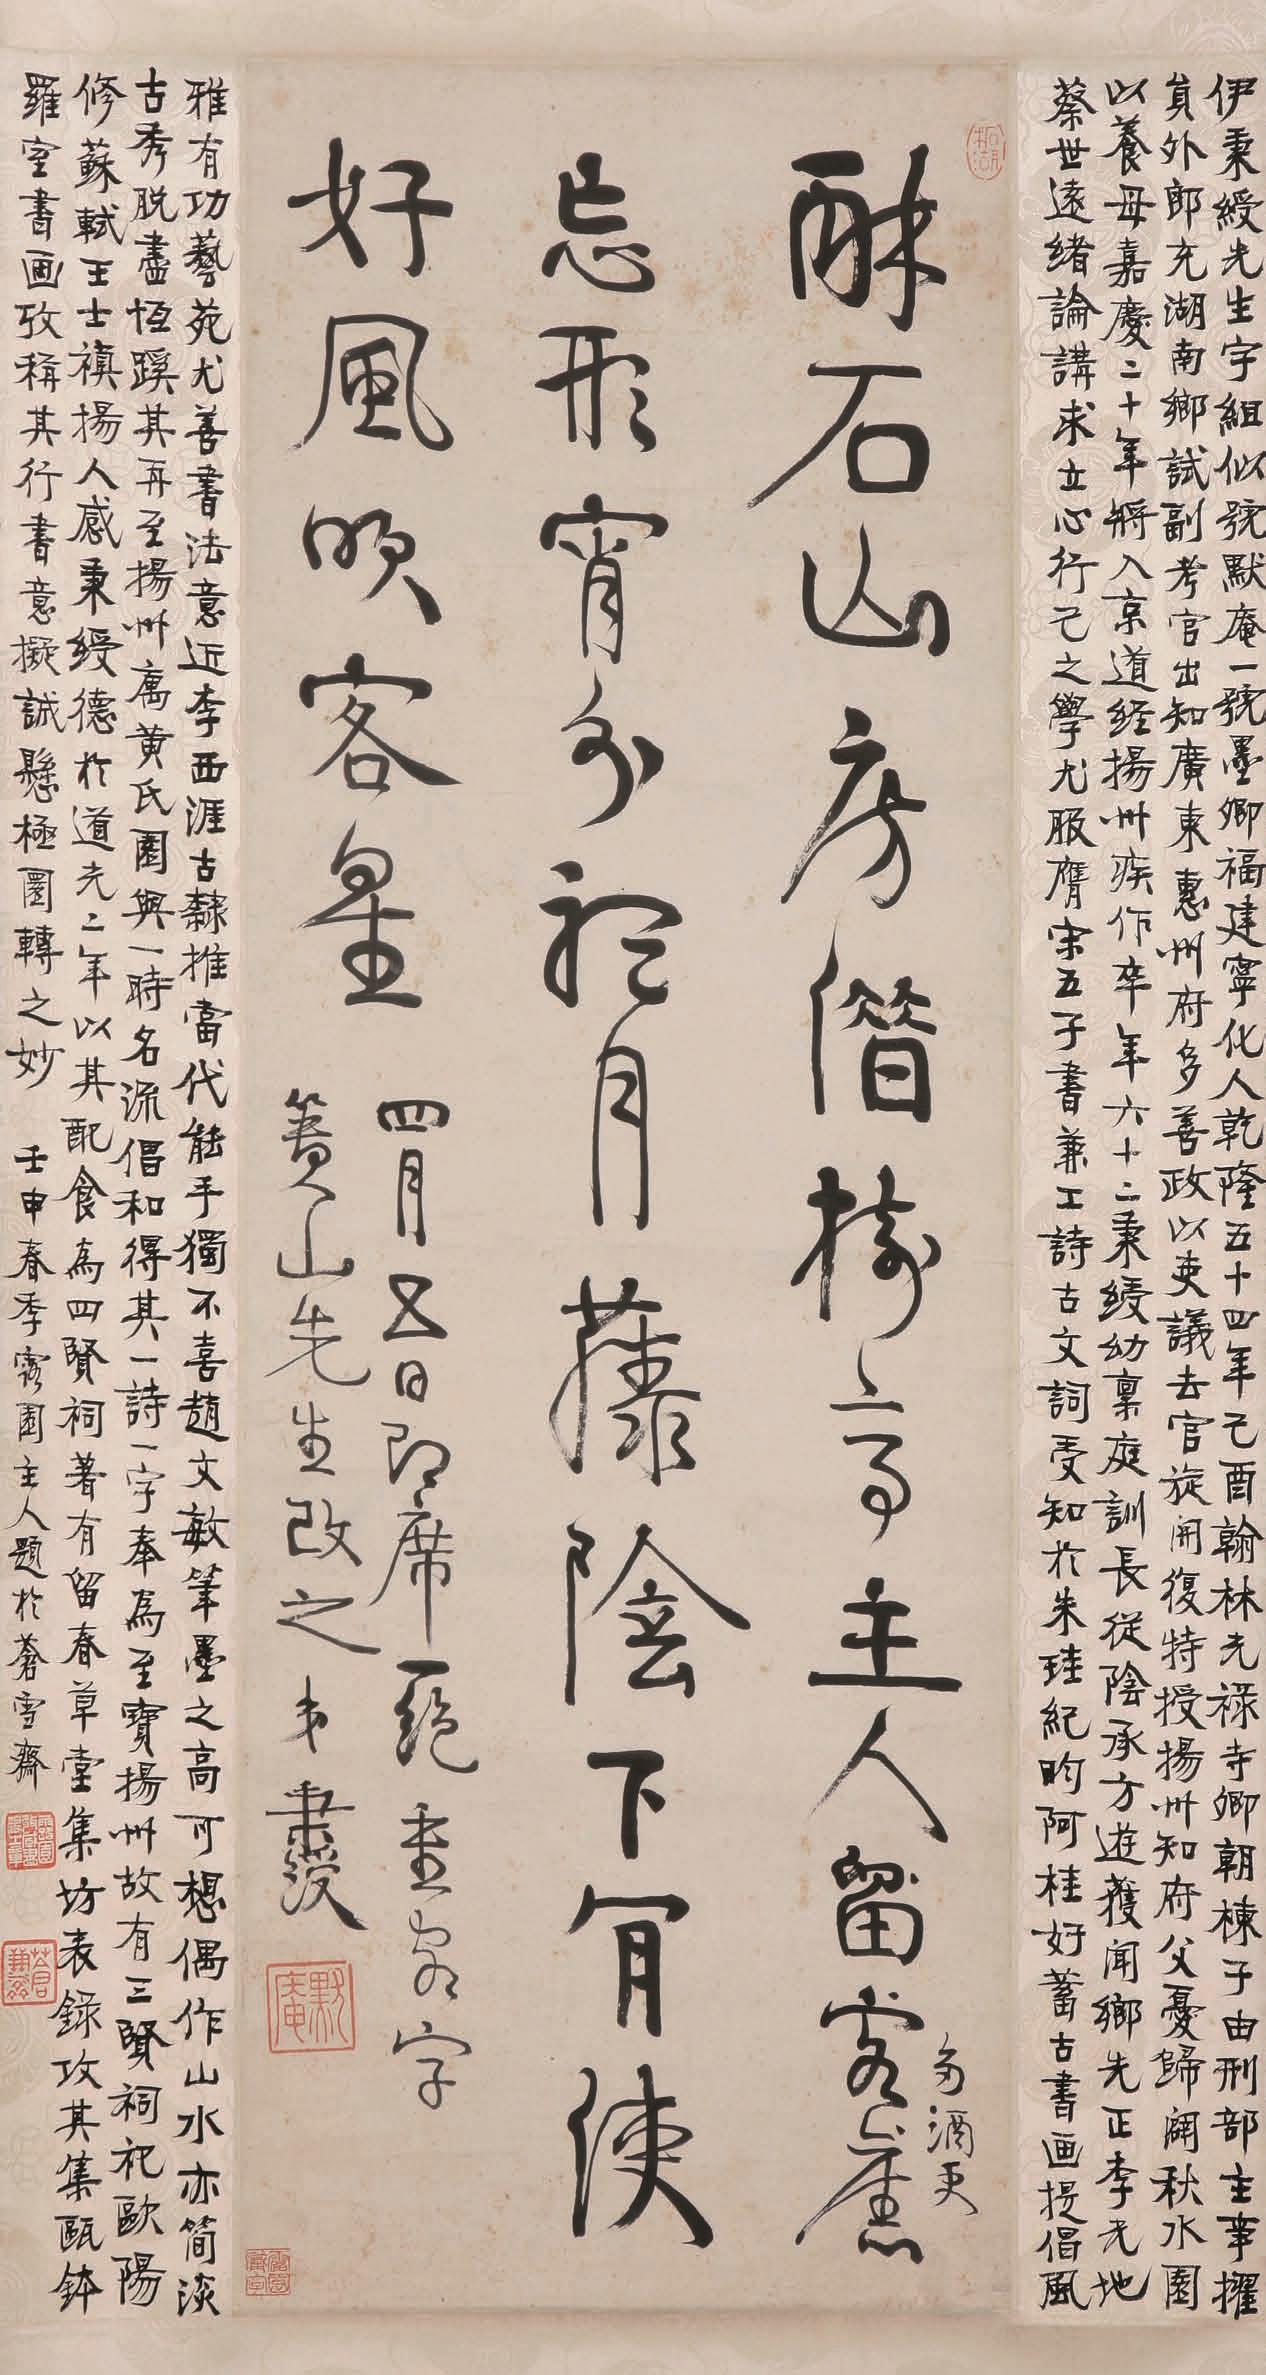 伊秉綬先生字組似號默庵一號墨卿福建寧化人乾隆五十四年己酉翰林光祿寺卿朝棟子由刑部主事擢
員外郎充湖南鄉試副考官出知廣東惠州府多善政以吏議去官旋開復特授揚州知府父憂歸闢秋水園
以養母嘉慶二十年將入京道經揚州疾作卒年六十二秉綬幼稟庭訓長從陰承方遊獲聞鄉先正李光地
蔡世遠緒論講求立心行己之學尤服膺宋五子書兼工詩古文詞受知於朱珪紀昀阿桂好蓄古書画提倡風
石山房借樹亭主人留客
酒更
忘形宵分禮月藤陰下有使
好風吹客星
四月五日即席一絕重客字
簣山先生改之弟秉綬
默庵
雅有功藝苑尤善書法意近李西涯古隸推當代能手獨不喜趙文敏筆墨之高可想偶作山水亦簡淡
古秀脱盡恒蹊其再至揚州寓黄氏園與一時名流倡和得其一詩一字奉為至寶揚州故有三賢祠祀歐陽
修蘇軾王士禛揚人感秉綬德於道光二年以其配食為四賢祠著有留春草堂集坊表錄攻其集甌鉢
羅室書画攷稱其行書意擬誠懸極圜轉之妙
壬申春季霧園主人題於蒼雪齋